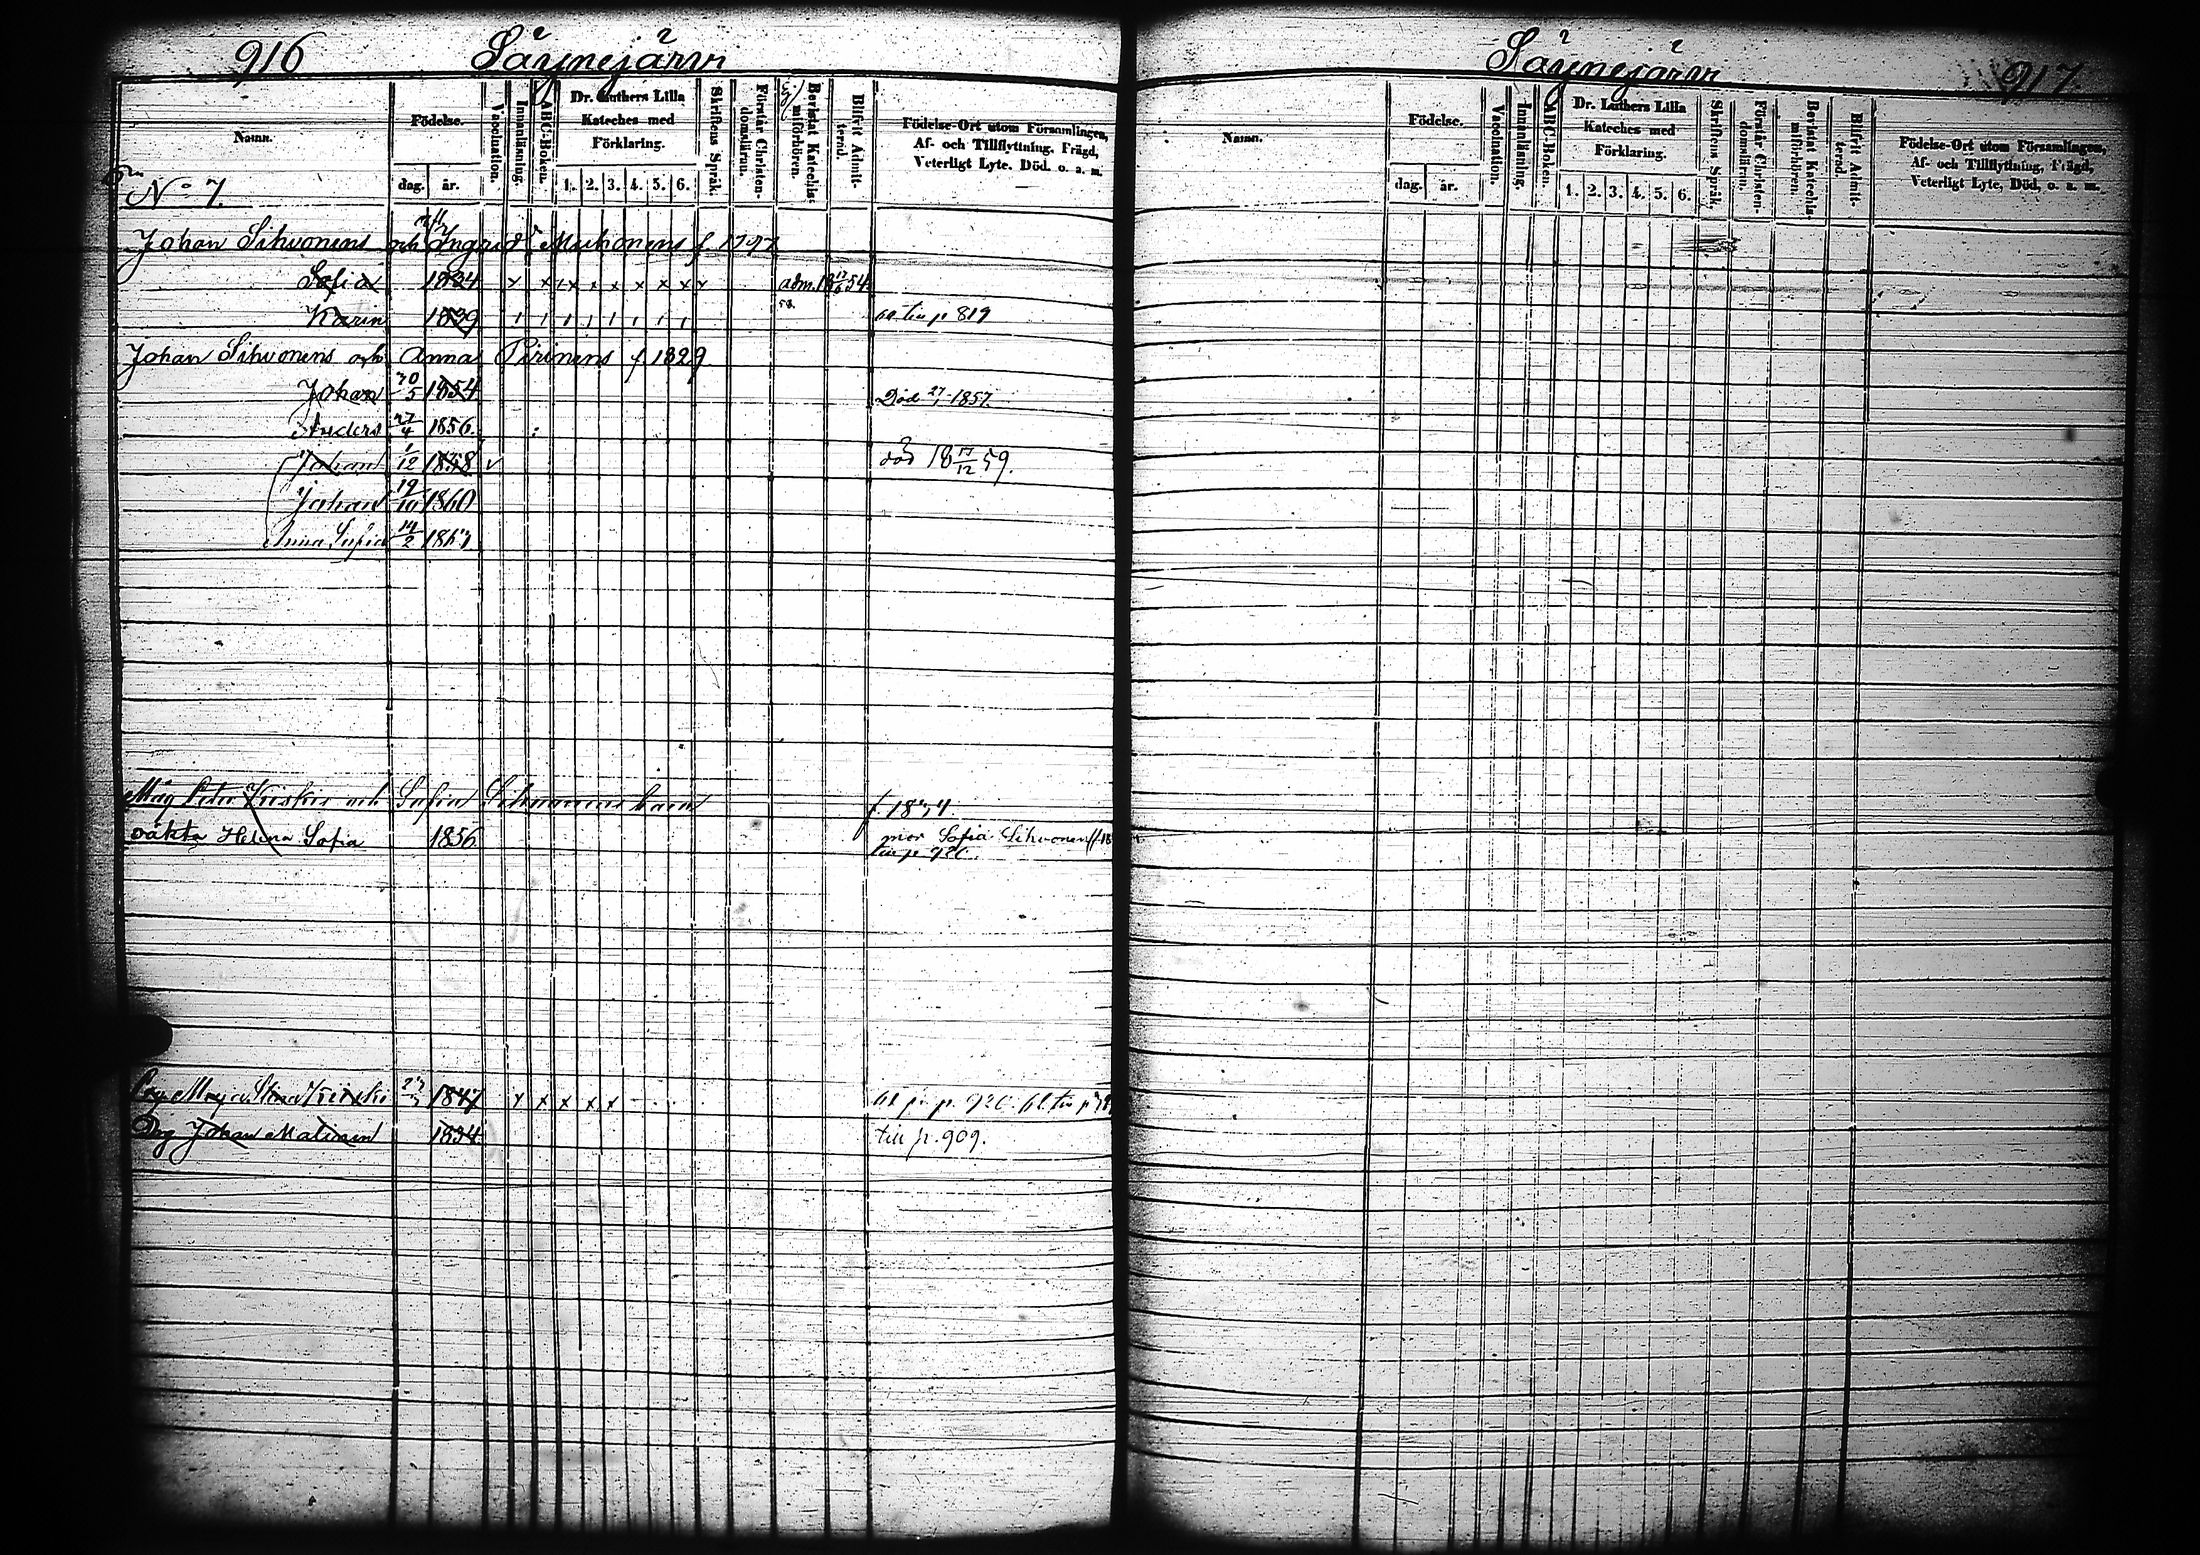 916 Säynejärvi
Namn. Födelse. dag. år. Vaccination. Innanläsning. ABC-Boken. Dr. Luthers Lilla Kateches med Förklaring. 1. 2. 3. 4. 5. 6. Skriftens Språk. Förstår Christendomsläran. Bevistat Katechismiförhören. Blifvit Admitterad. Födelse-Ort utom Församlingen, Af- och Tillflyttning, Frägd, Veterligt Lyte. Död. o. a. m.
No 7.
Johan Sihvonens och Ingrid Muhonens f
Sofia 1834 x x x x x x x x adm. 18 54
Karin 1839 p 819
Johan Sihvonens och Anna Pirinens f 1829
Johan 1854 Död 27/1 1857.
Anders 27/4 1856.
Johan 1/12 1858 död 18 17/12 59.
Johan 19/10 1860
Anna Sofia 14/2
Måg Peter Kiiskis och Sofia Sihvonens barn
oäkta Helena Sofia 1856 mor Sofia Sihvonen
till p. 920.
Maja Stina 1847 x x x x x p. 920.
Drg Johan Matinen 1834 till p. 909.
Säynejärvi 917.
Namn. Födelse. dag. år. Vaccination. Innanläsning. ABC-Boken. Dr. Luthers Lilla Kateches med Förklaring. 1. 2. 3. 4. 5. 6. Skriftens Språk. Förstår Christendomsläran. Bevistat Katechismiförhören. Blifvit Admitterad. Födelse-Ort utom Församlingen, Af- och Tillflyttning, Frägd, Veterligt Lyte, Död, o. a. m.